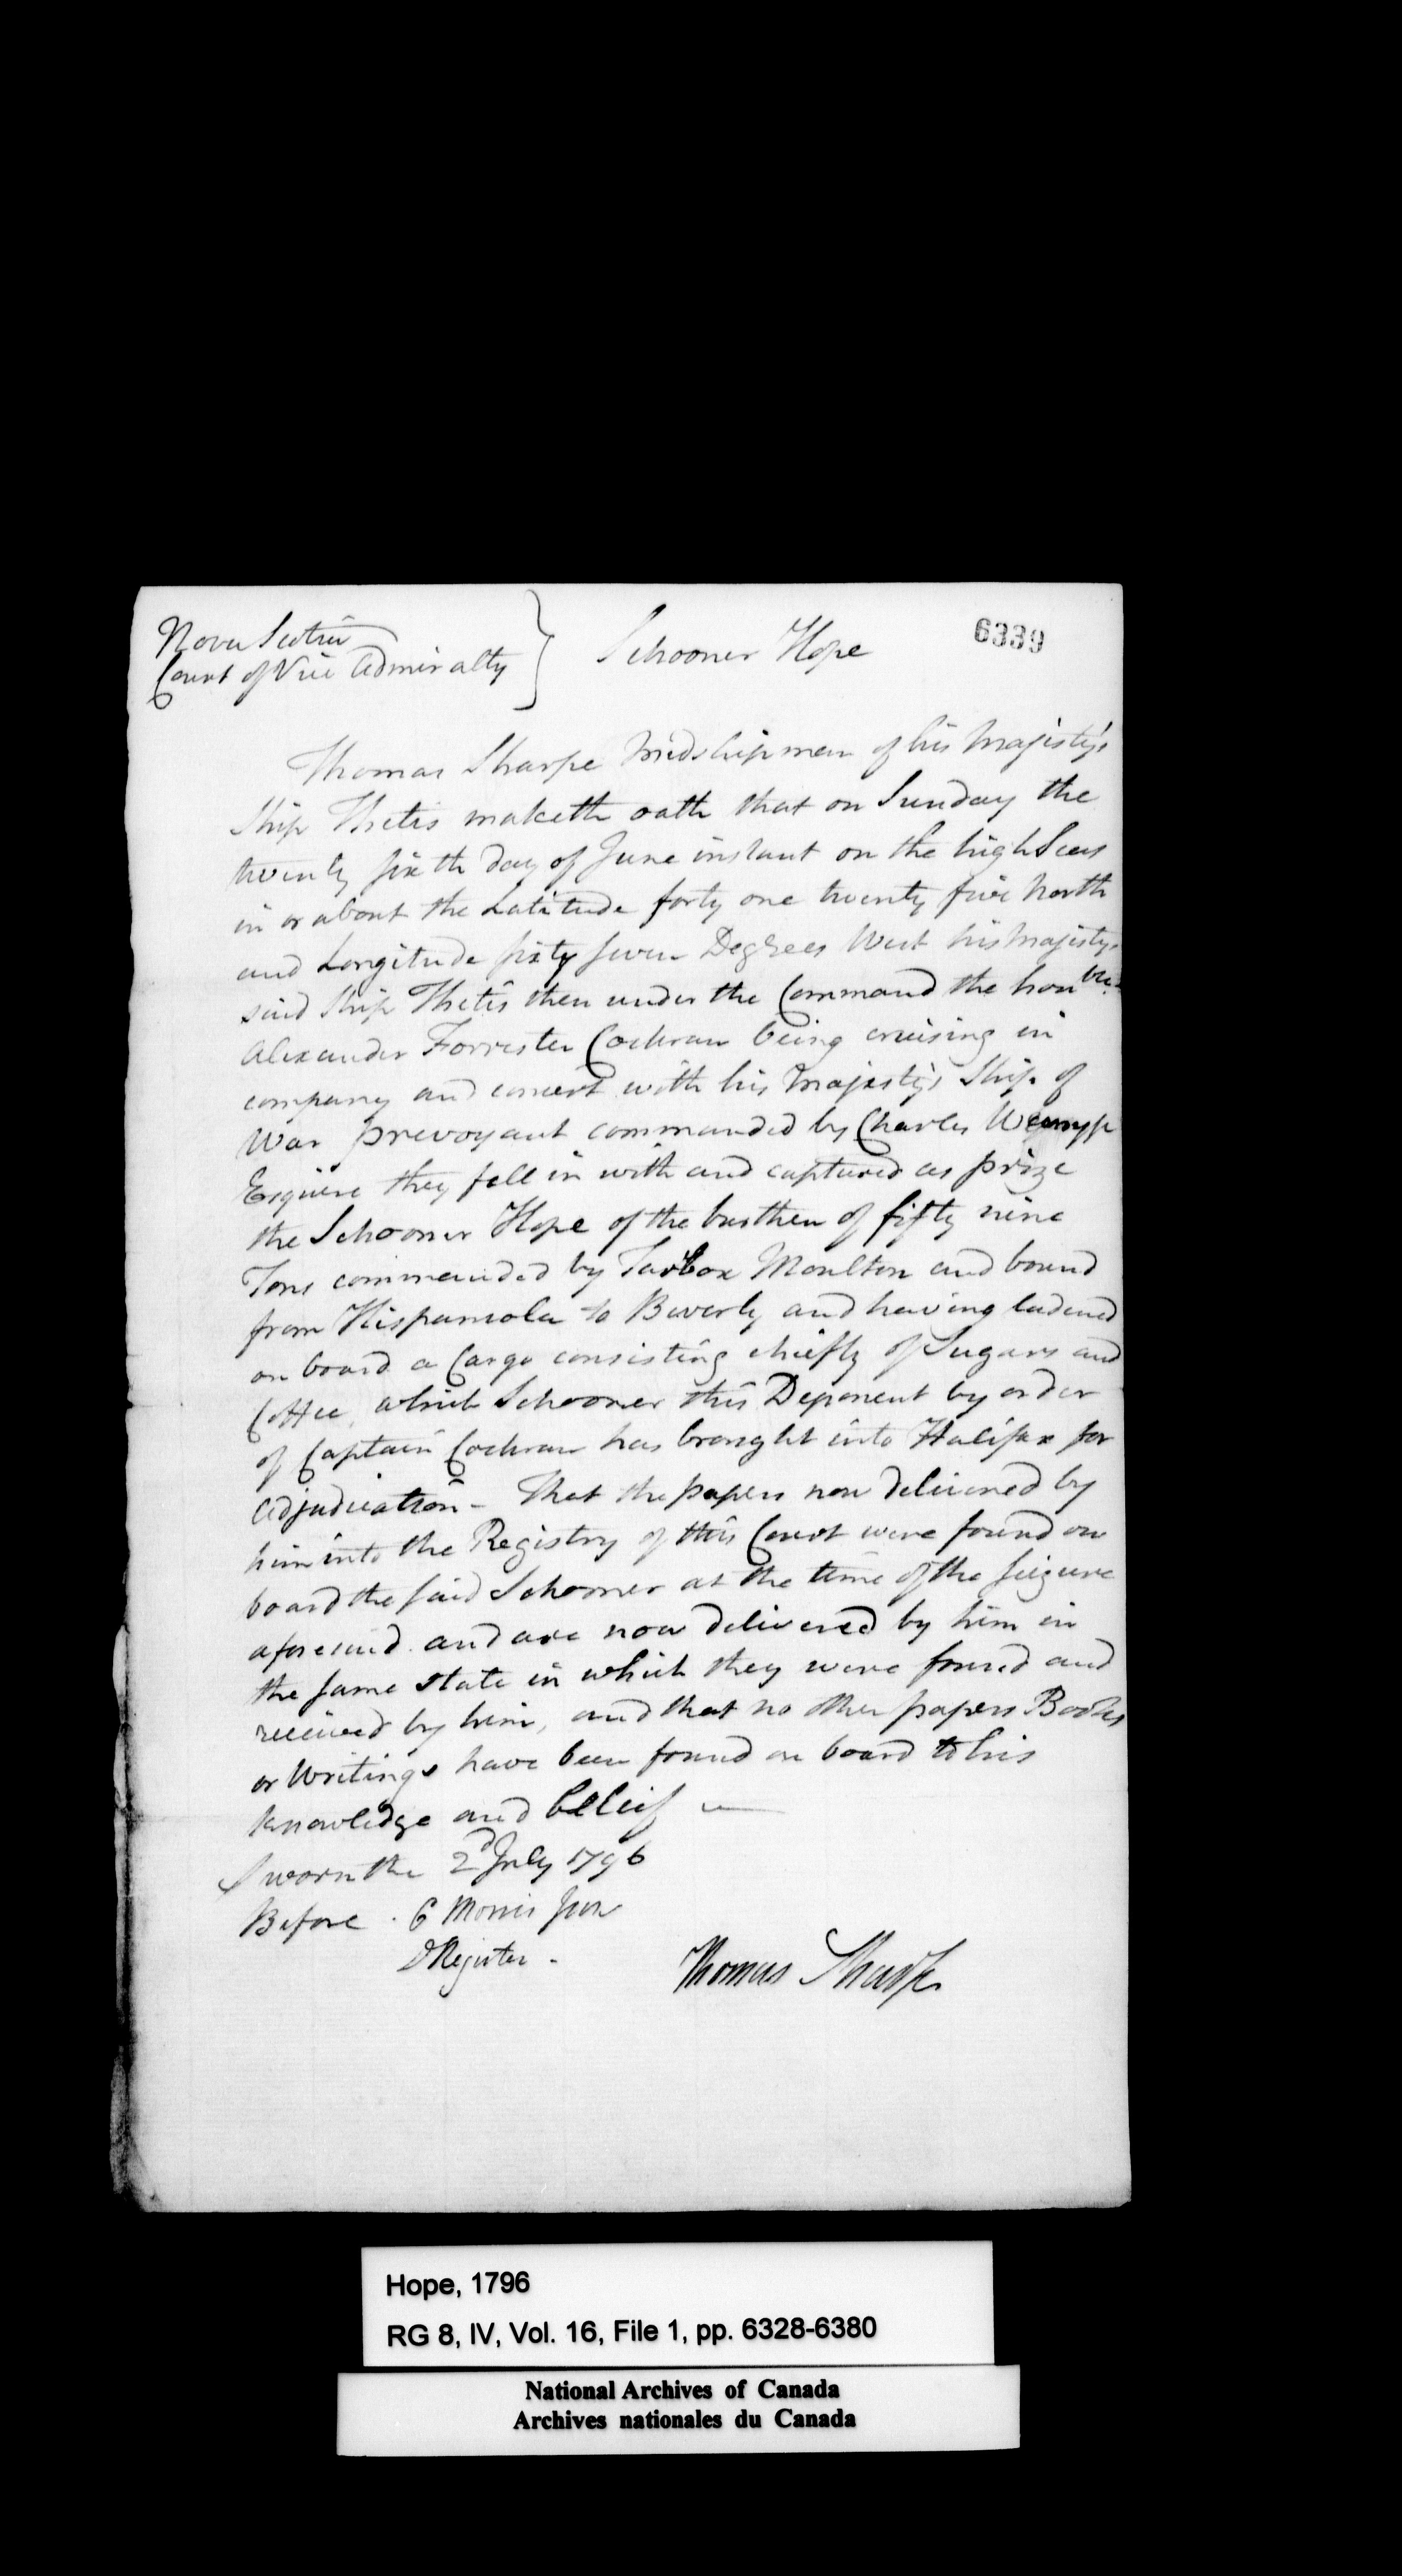 Nova Scotia
Court of Vice Admiralty } Schooner Hope
6339
Thomas Sharpe Midshipman of his Majesty's
Ship Thetis maketh oath that on Sunday the
twenty sixth day of June instant on the high Seas
in or about the Latitude forty one twenty five North
and Longitude sixty seven Degrees West his Majestys
said Ship Thetis then under the Command the honble
Alexander Forrester Cochran being cruising in
company and concert with his Majesty's Ship of
War prevoyant commanded by Charles Wemyss
Esquire they fell in with and captured as prize
the Schooner Hope of the burthen of fifty nine
Tons commanded by Tarbox Moulton and bound
from Hispaniola to Beverly and having ladened
on board a Cargo consisting chiefly of Sugars and
Coffee, which Schooner this Deponent by order
of Captain Cochran has brought into Halifax for
adjudication - That the papers now delivered by
him into the Registry of this Court were found on
board the said Schooner at the time of the seizure
aforesaid and are now delivered by him in
the same state in which they were found and
received by him, and that no other papers Books
or Writings have been found on board to his
knowledge and belief
Sworn the 2d July 1796
Before. C Morris Junr
D Register -
Thomas Sharpe
Hope, 1796
RG 8, IV, Vol. 16, File 1, pp. 6328-6380
National Archives of Canada
Archives nationales du Canada